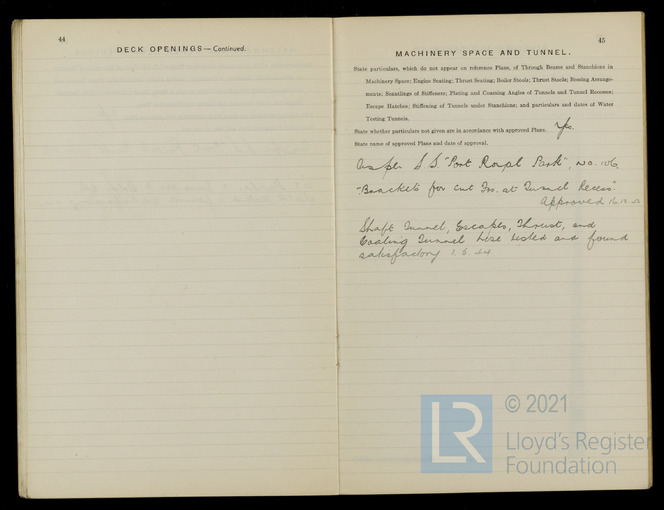 44
DECK OPENINGS—Continued.
45
MACHINERY SPACE AND TUNNEL.
State particulars, which do not appear on reference Plans, of Through Beams and Stanchions in
Machinery Space; Engine Seating; Thrust Seating; Boiler Stools; Thrust Stools; Bossing Arrange-
ments; Scantlings of Stiffeners; Plating and Coaming Angles of Tunnels and Tunnel Recesses;
Escape Hatches; Stiffening of Tunnels under Stanchions; and particulars and dates of Water
Testing Tunnels.
State whether particulars not given are in accordance with approved Plans. Yes.
State name of approved Plans and date of approval.
As per S.S "Port Royal Park", No. 106
"Brackets for cut Frs. at Tunnel Recess".
Approved 16.12
Shaft Tunnel, Escapes, Thrust, and
Tunnel hose tested and found
satisfactory 1.5.44
LR
© 2021
Lloyd's Register
Foundation